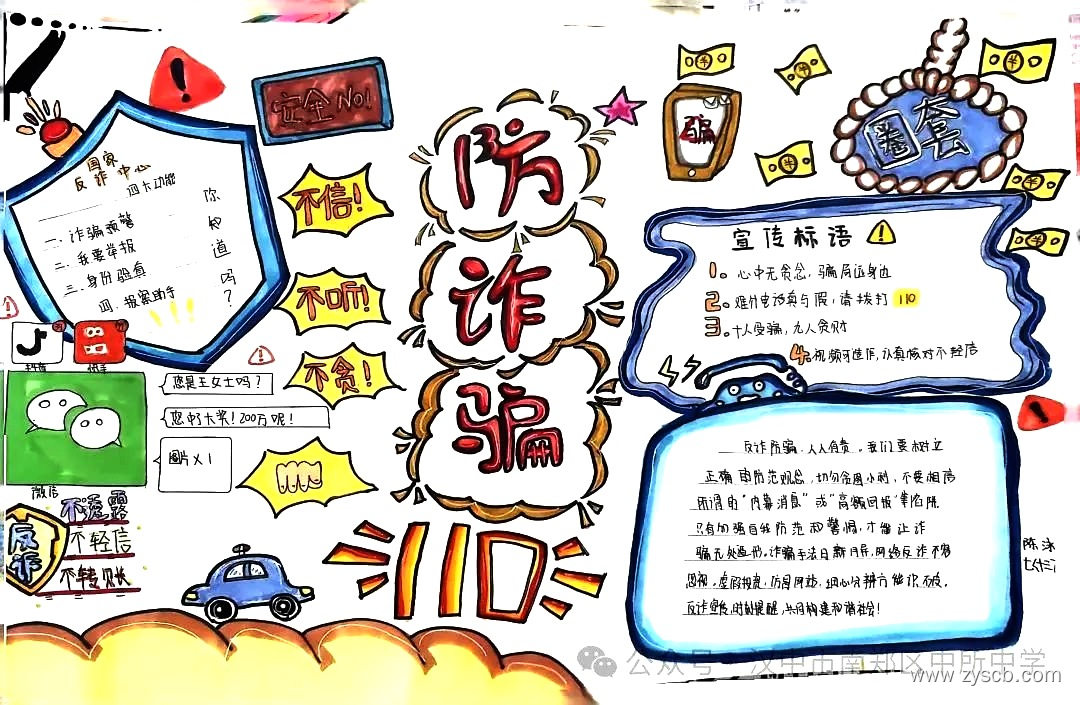 国家
反诈中心
四大功能
一、诈骗预警
二、我要举报
三、身份验真
四、报案助手
你
知
道
吗
?
安全No!
不信!
不听!
不贪!
防
诈
骗
110
骗
圈套
宣传标语
1. 心中无贪念，骗局远身边
2. 难什电话真与假，请拨打 110
3. 十人受骗，九人贪财
4. 视频可造作，认真核对不轻信
抖音
快手
您是王女士吗?
您中大奖!200万呢!
图片X1
微信
反诈
不透露
不轻信
不转账
反诈防骗，人人有责。我们要树立
正确的防范观念，切勿贪图小利，不要相信
所谓的"内幕消息"或"高额回报"等陷阱
只有加强自我防范和警惕，才能让诈
骗无处遁形。诈骗手法日新月异，网络反诈不容
忽视。虚假投资，仿冒网站，细心分辨方能识破。
反诈宣传，时刻提醒，共同构建和谐社会!
陈泳
公众号·汉中市南郑区中所中学
www.zyscb.com